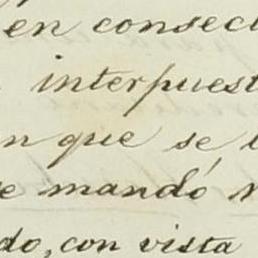 en consec
interpuest
n que se l
e mandó
do, con vista